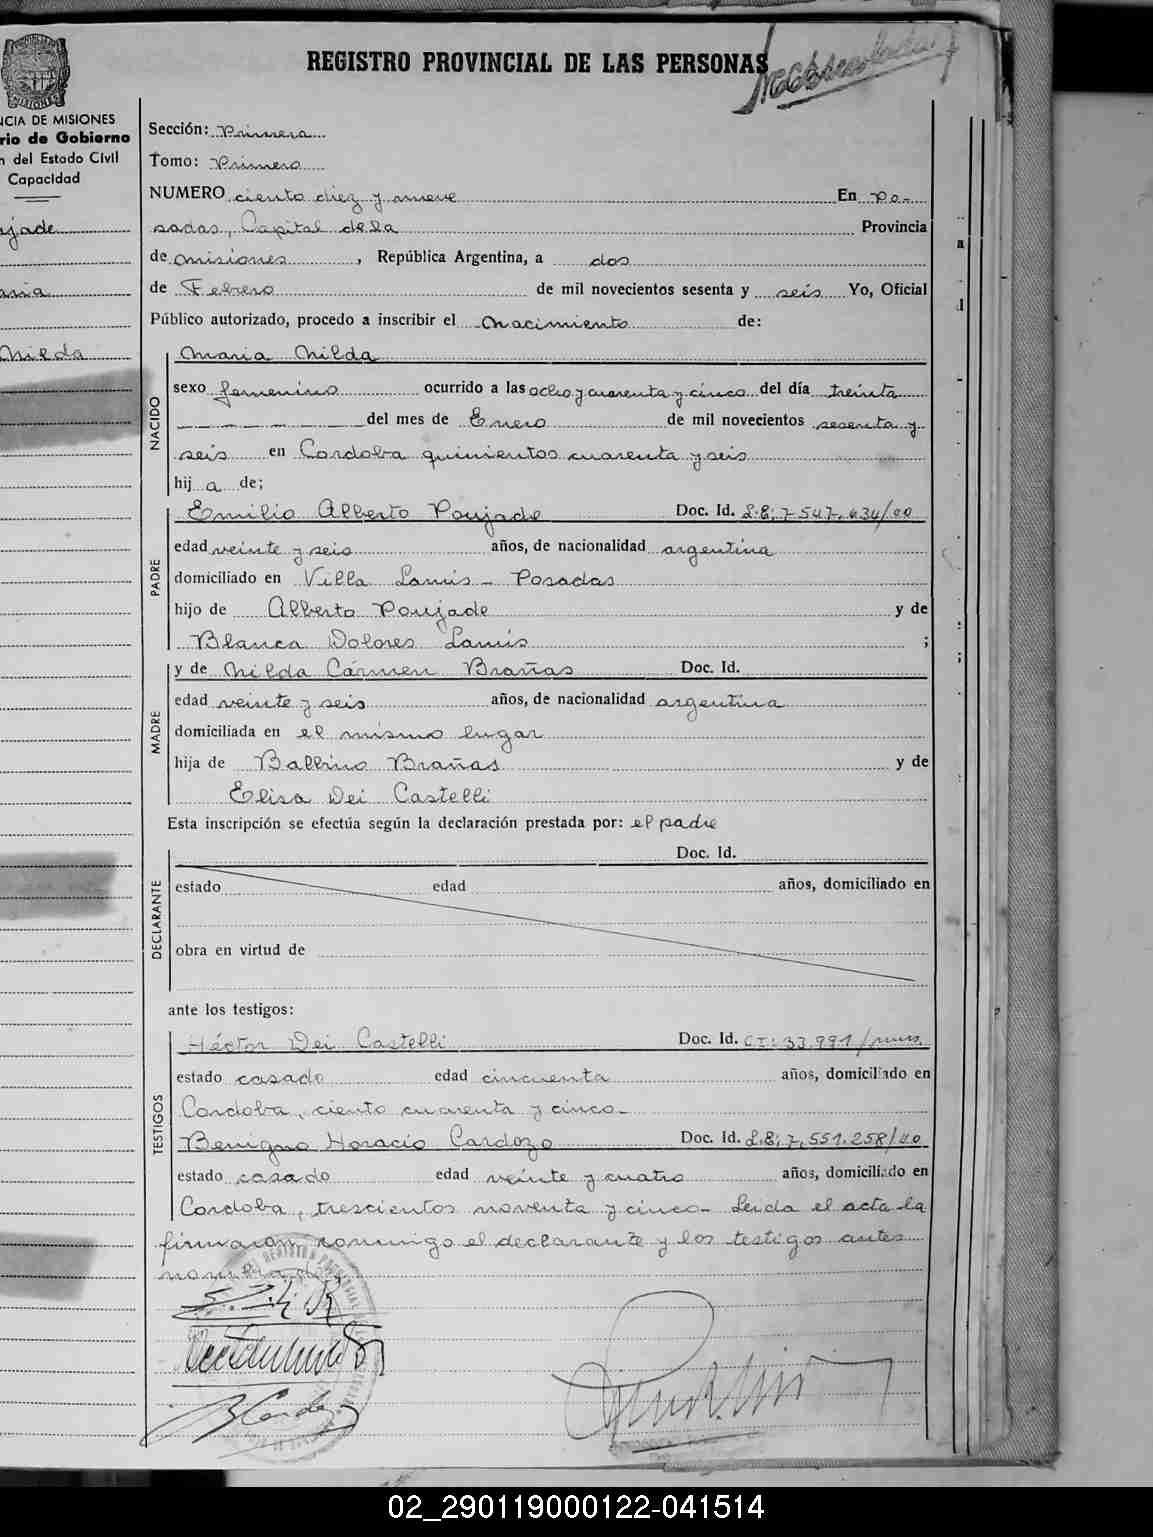 REGISTRO PROVINCIAL DE LAS PERSONAS
NCIA DE MISIONES
rio de Gobierno
n del Estado Civil
Capacidad
ujade
aria
Nilda
Sección: Primera
Tomo: Primero
NUMERO ciento diez y nueve En Po-
sadas, Capital de la Provincia
de Misiones, República Argentina, a dos
de Febrero de mil novecientos sesenta y seis Yo, Oficial
Público autorizado, procedo a inscribir el Nacimiento de:
NACIDO
Maria Nilda
sexo femenino ocurrido a las ocho y cuarenta y cinco del día treinta
del mes de Enero de mil novecientos sesenta y
seis en Cordoba quinientos cuarenta y seis
hija de;
PADRE
Emilio Alberto Poujade Doc. Id. L.E; 7.547.434/00
edad veinte y seis años, de nacionalidad argentina
domiciliado en Villa Lanús - Posadas
hijo de Alberto Poujade y de
Blanca Dolores Lanús ;
MADRE
y de Nilda Cármen Brañas Doc. Id.
edad veinte y seis años, de nacionalidad argentina
domiciliada en el mismo lugar
hija de Balbino Brañas y de
Elisa Dei Castelli
Esta inscripción se efectúa según la declaración prestada por: el padre
DECLARANTE
Doc. Id.
estado edad años, domiciliado en
obra en virtud de
ante los testigos:
TESTIGOS
Héctor Dei Castelli Doc. Id. CI: 33.991/mns.
estado casado edad cincuenta años, domiciliado en
Cordoba, ciento cuarenta y cinco-
Benigno Horacio Cardozo Doc. Id. L.E; 7.551.258/40
estado casado edad veinte y cuatro años, domiciliado en
Cordoba, trescientos noventa y cinco- Leida el acta la
firmaron conmigo el declarante y los testigos antes
nombrados
02_290119000122-041514